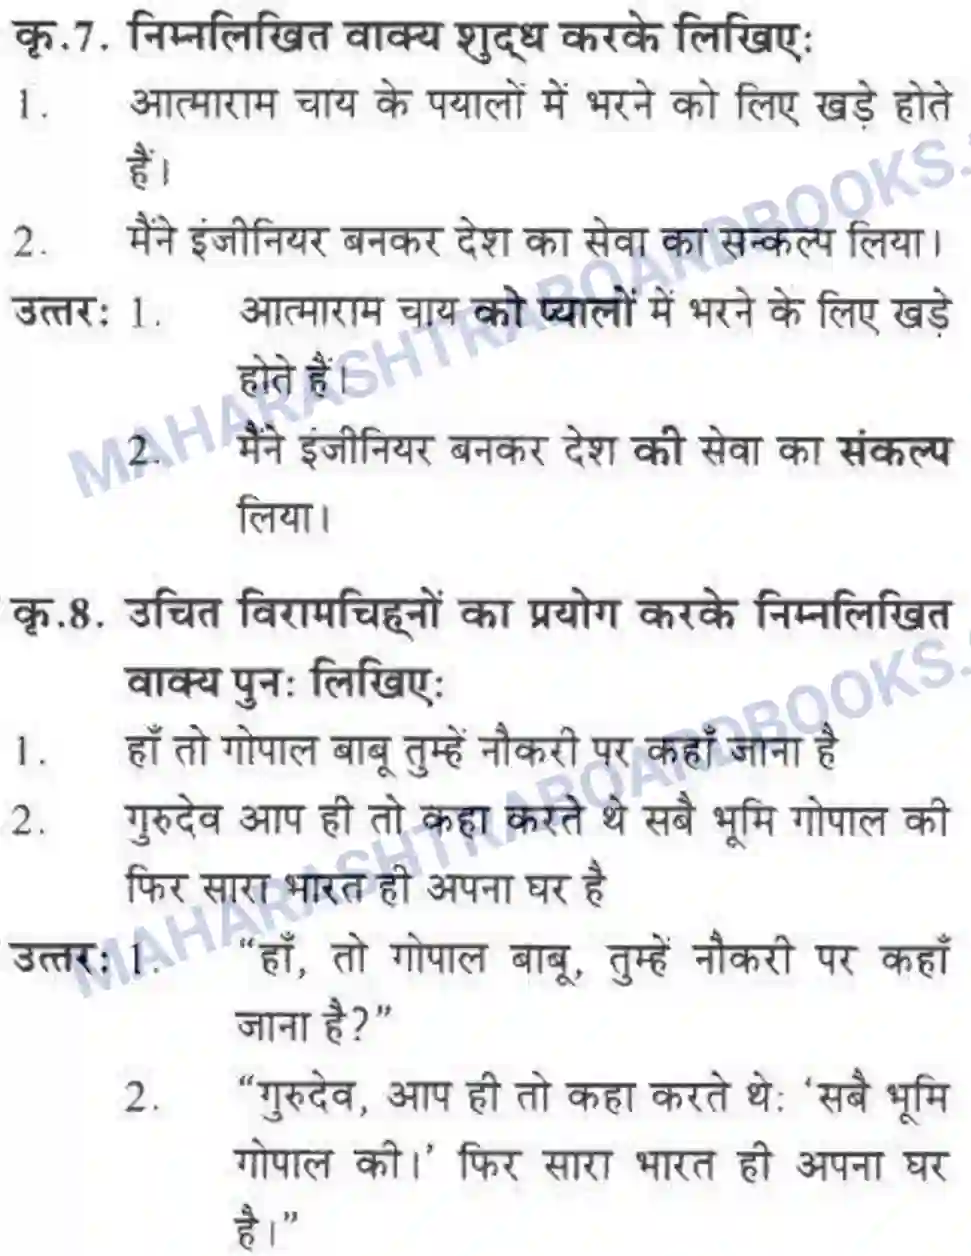 कृ.7. निम्नलिखित वाक्य शुद्ध करके लिखिए:
1. आत्माराम चाय के पयालों में भरने को लिए खड़े होते
हैं।
2. मैंने इंजीनियर बनकर देश का सेवा का सन्कल्प लिया।
उत्तर: 1. आत्माराम चाय को प्यालों में भरने के लिए खड़े
होते हैं।
2. मैंने इंजीनियर बनकर देश की सेवा का संकल्प
लिया।
कृ.8. उचित विरामचिह्नों का प्रयोग करके निम्नलिखित
वाक्य पुन: लिखिए:
1. हाँ तो गोपाल बाबू तुम्हें नौकरी पर कहाँ जाना है
2. गुरुदेव आप ही तो कहा करते थे सबै भूमि गोपाल की
फिर सारा भारत ही अपना घर है
उत्तर: 1. “हाँ, तो गोपाल बाबू, तुम्हें नौकरी पर कहाँ
जाना है?”
2. “गुरुदेव, आप ही तो कहा करते थे: ‘सबै भूमि
गोपाल की।’ फिर सारा भारत ही अपना घर
है।”
MAHARASHTRABOARDBOOKS.
MAHARASHTRABOARDBOOKS.